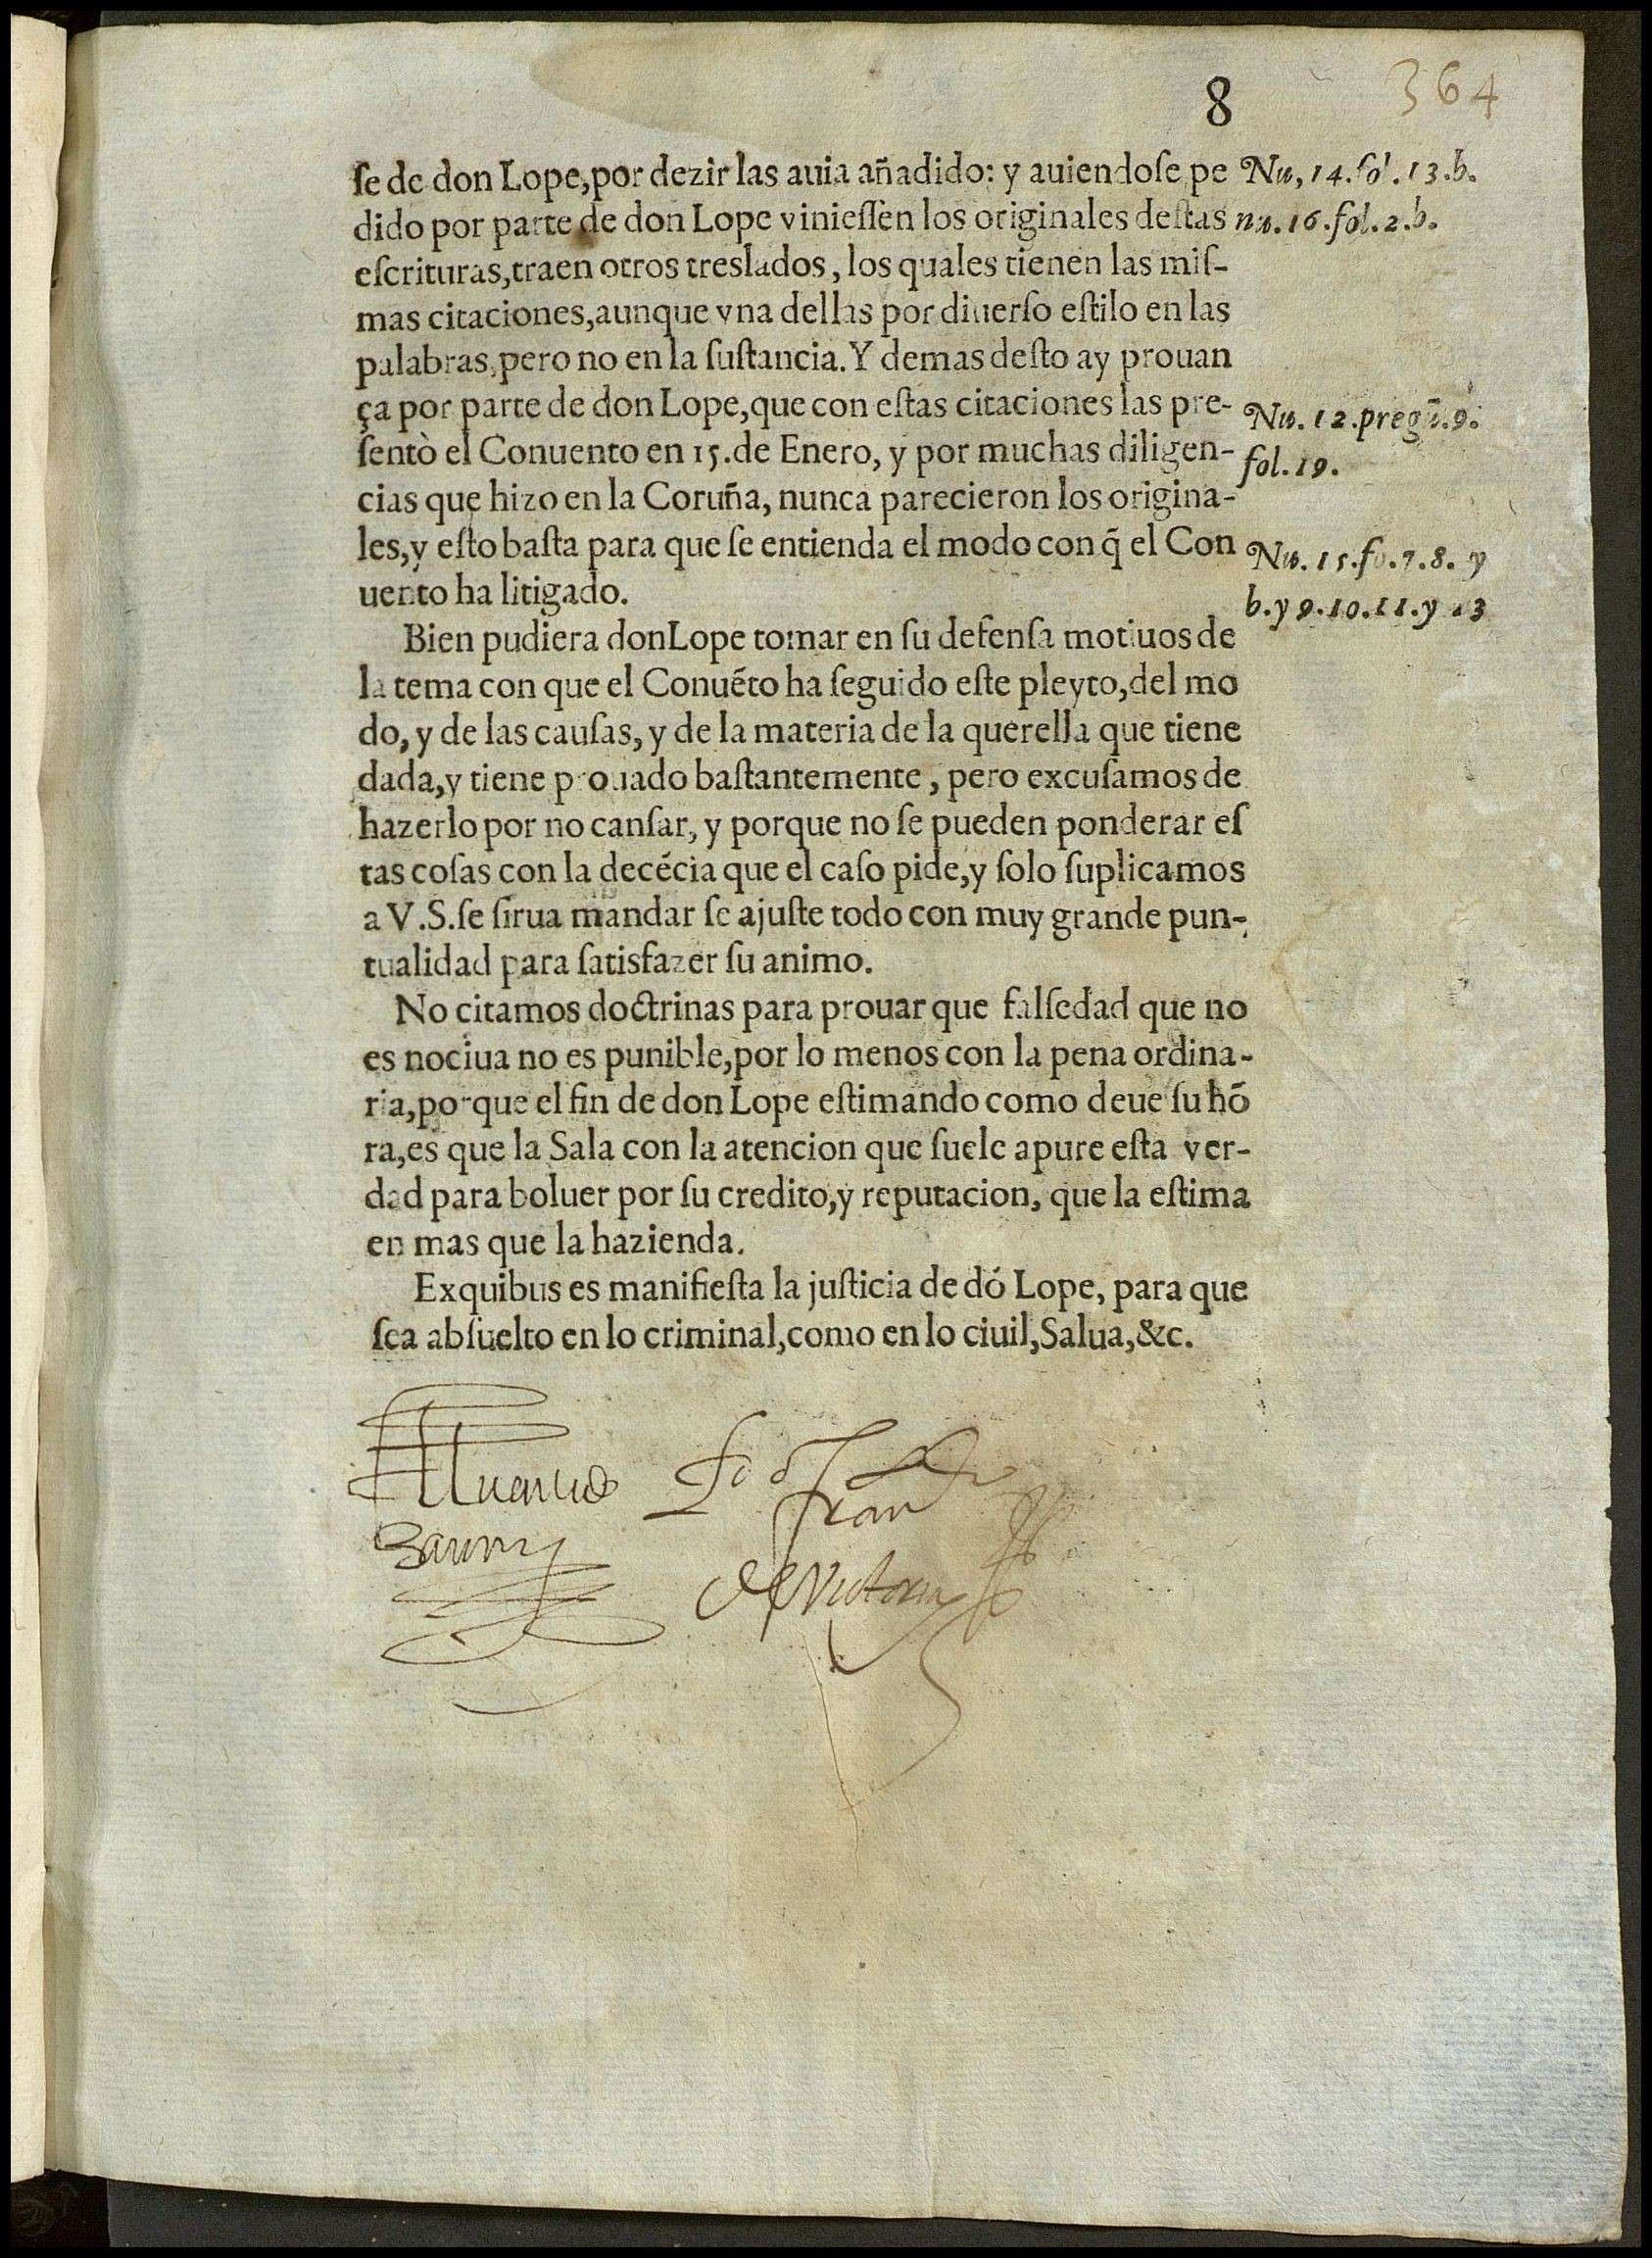 8
364
ſe de don Lope, por dezir las auia añadido: y auiendoſe pe
Nu, 14. fol. 13. b.
dido por parte de don Lope vinieſſèn los originales deſtas
nu. 16. fol. 2. b.
eſcrituras, traen otros treslados, los quales tienen las miſ-
mas citaciones, aunque vna dellas por diuerſo eſtilo en las
palabras, pero no en la ſuſtancia. Y demas deſto ay prouan
ça por parte de don Lope, que con eſtas citaciones las pre-
Nu. 12. pregũ. 9.
ſentò el Conuento en 15. de Enero, y por muchas diligen-
fol. 19.
cias que hizo en la Coruña, nunca parecieron los origina-
les, y eſto baſta para que ſe entienda el modo con q̃ el Con
Nu. 15. fo. 7. 8. y
uento ha litigado.
b. y 9. 10. 11. y 13
Bien pudiera don Lope tomar en ſu defenſa motiuos de
la tema con que el Conuẽto ha ſeguido eſte pleyto, del mo
do, y de las cauſas, y de la materia de la querella que tiene
dada, y tiene prouado baſtantemente, pero excuſamos de
hazerlo por no canſar, y porque no ſe pueden ponderar eſ
tas coſas con la decẽcia que el caſo pide, y ſolo ſuplicamos
a V. S. ſe ſirua mandar ſe ajuſte todo con muy grande pun-
tualidad para ſatisfazer ſu animo.
No citamos doctrinas para prouar que falſedad que no
es nociua no es punible, por lo menos con la pena ordina-
ria, porque el fin de don Lope eſtimando como deue ſu hõ
ra, es que la Sala con la atencion que ſuele apure eſta ver-
dad para boluer por ſu credito, y reputacion, que la eſtima
en mas que la hazienda.
Exquibus es manifieſta la juſticia de dõ Lope, para que
ſea abſuelto en lo criminal, como en lo ciuil, Salua, &c.
de Victoria